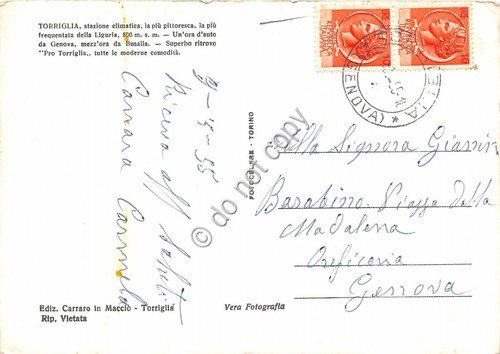 TORRIGLIA, stazione climatica, la più pittoresca, la più
frequentata della Liguria, 800 m. s. m. — Un'ora d'auto
da Genova, mezz'ora da Busalla. — Superbo ritrovo
"Pro Torriglia,, tutte le moderne comodità.
9-4-55
Riceva aff. saluti
Camara Carmela
Ediz. Carraro in Maccio - Torriglia
Rip. Vietata
FOTOCELERE - TORINO
Vera Fotografia
do not copy
(GENOVA)
Alla Signora Giannin
Barabino. Piazza della
Maddalena
Oreficeria
Genova